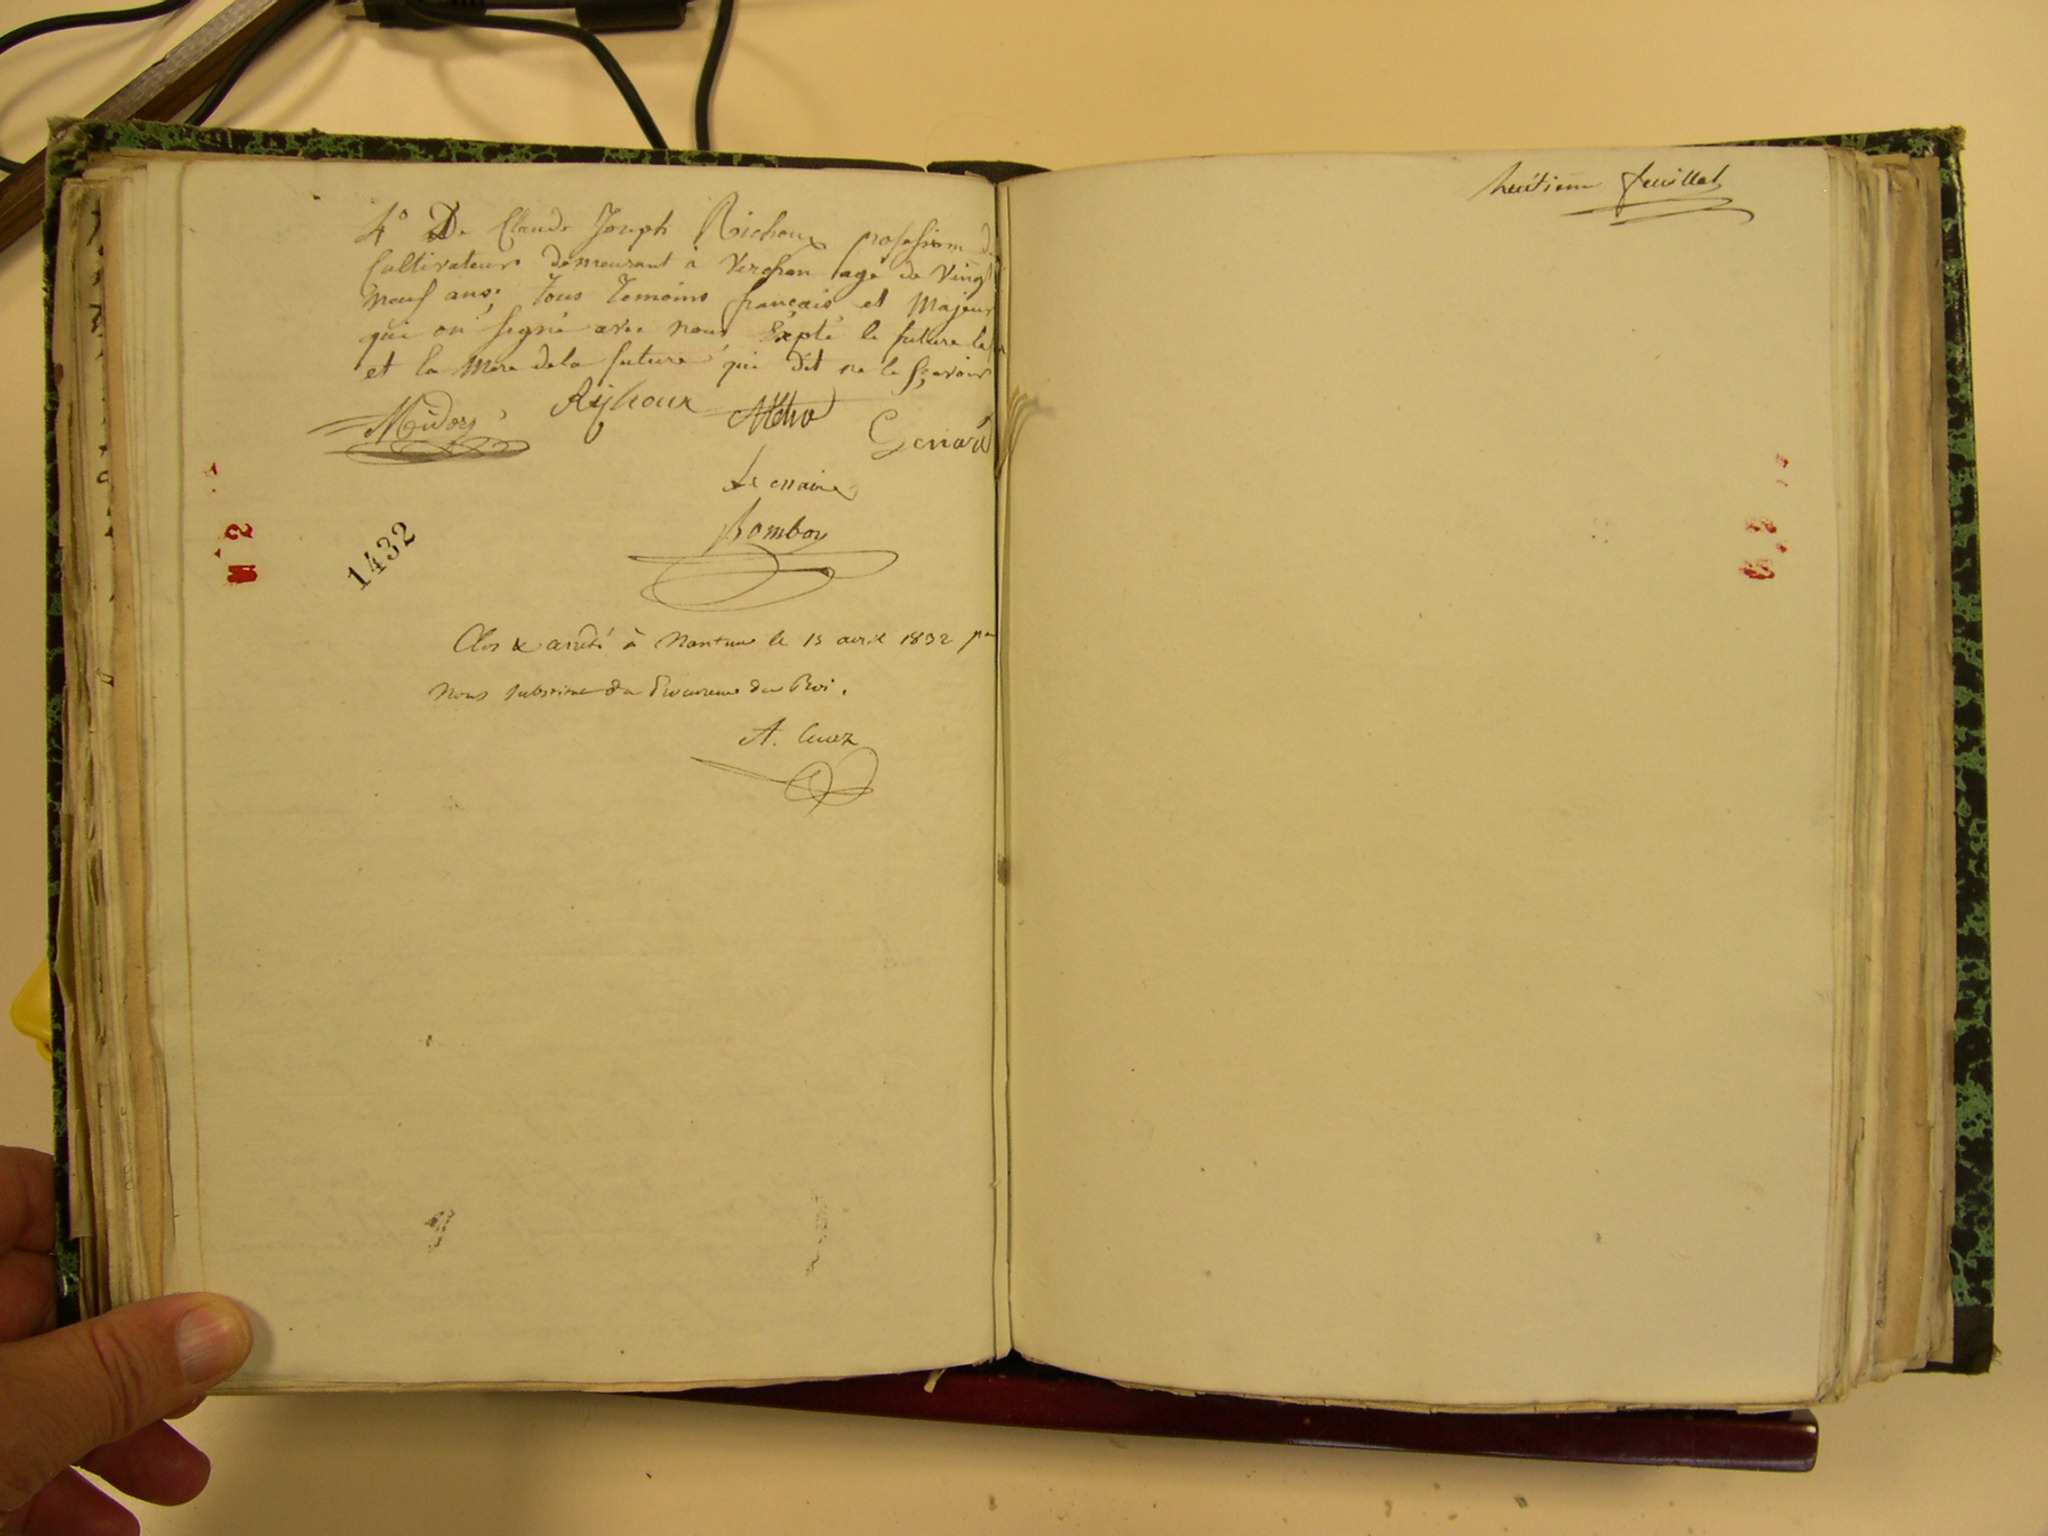 4° De Claude Joseph Richoux profession de
Cultivateur demeurant à Verchon agé de Vingt
Neuf ans; Tous Temoins français et Majeur
qui on signé avec nous Expté la future
et la Mere dela future qui dit ne le sçavoir
Midor Richoux Genard
Le maire
Bomboy
1432
Clos & arrêté à Nantua le 15 avril 1832 par
Nous substitut du Procureur du Roi.
huitieme feuillet